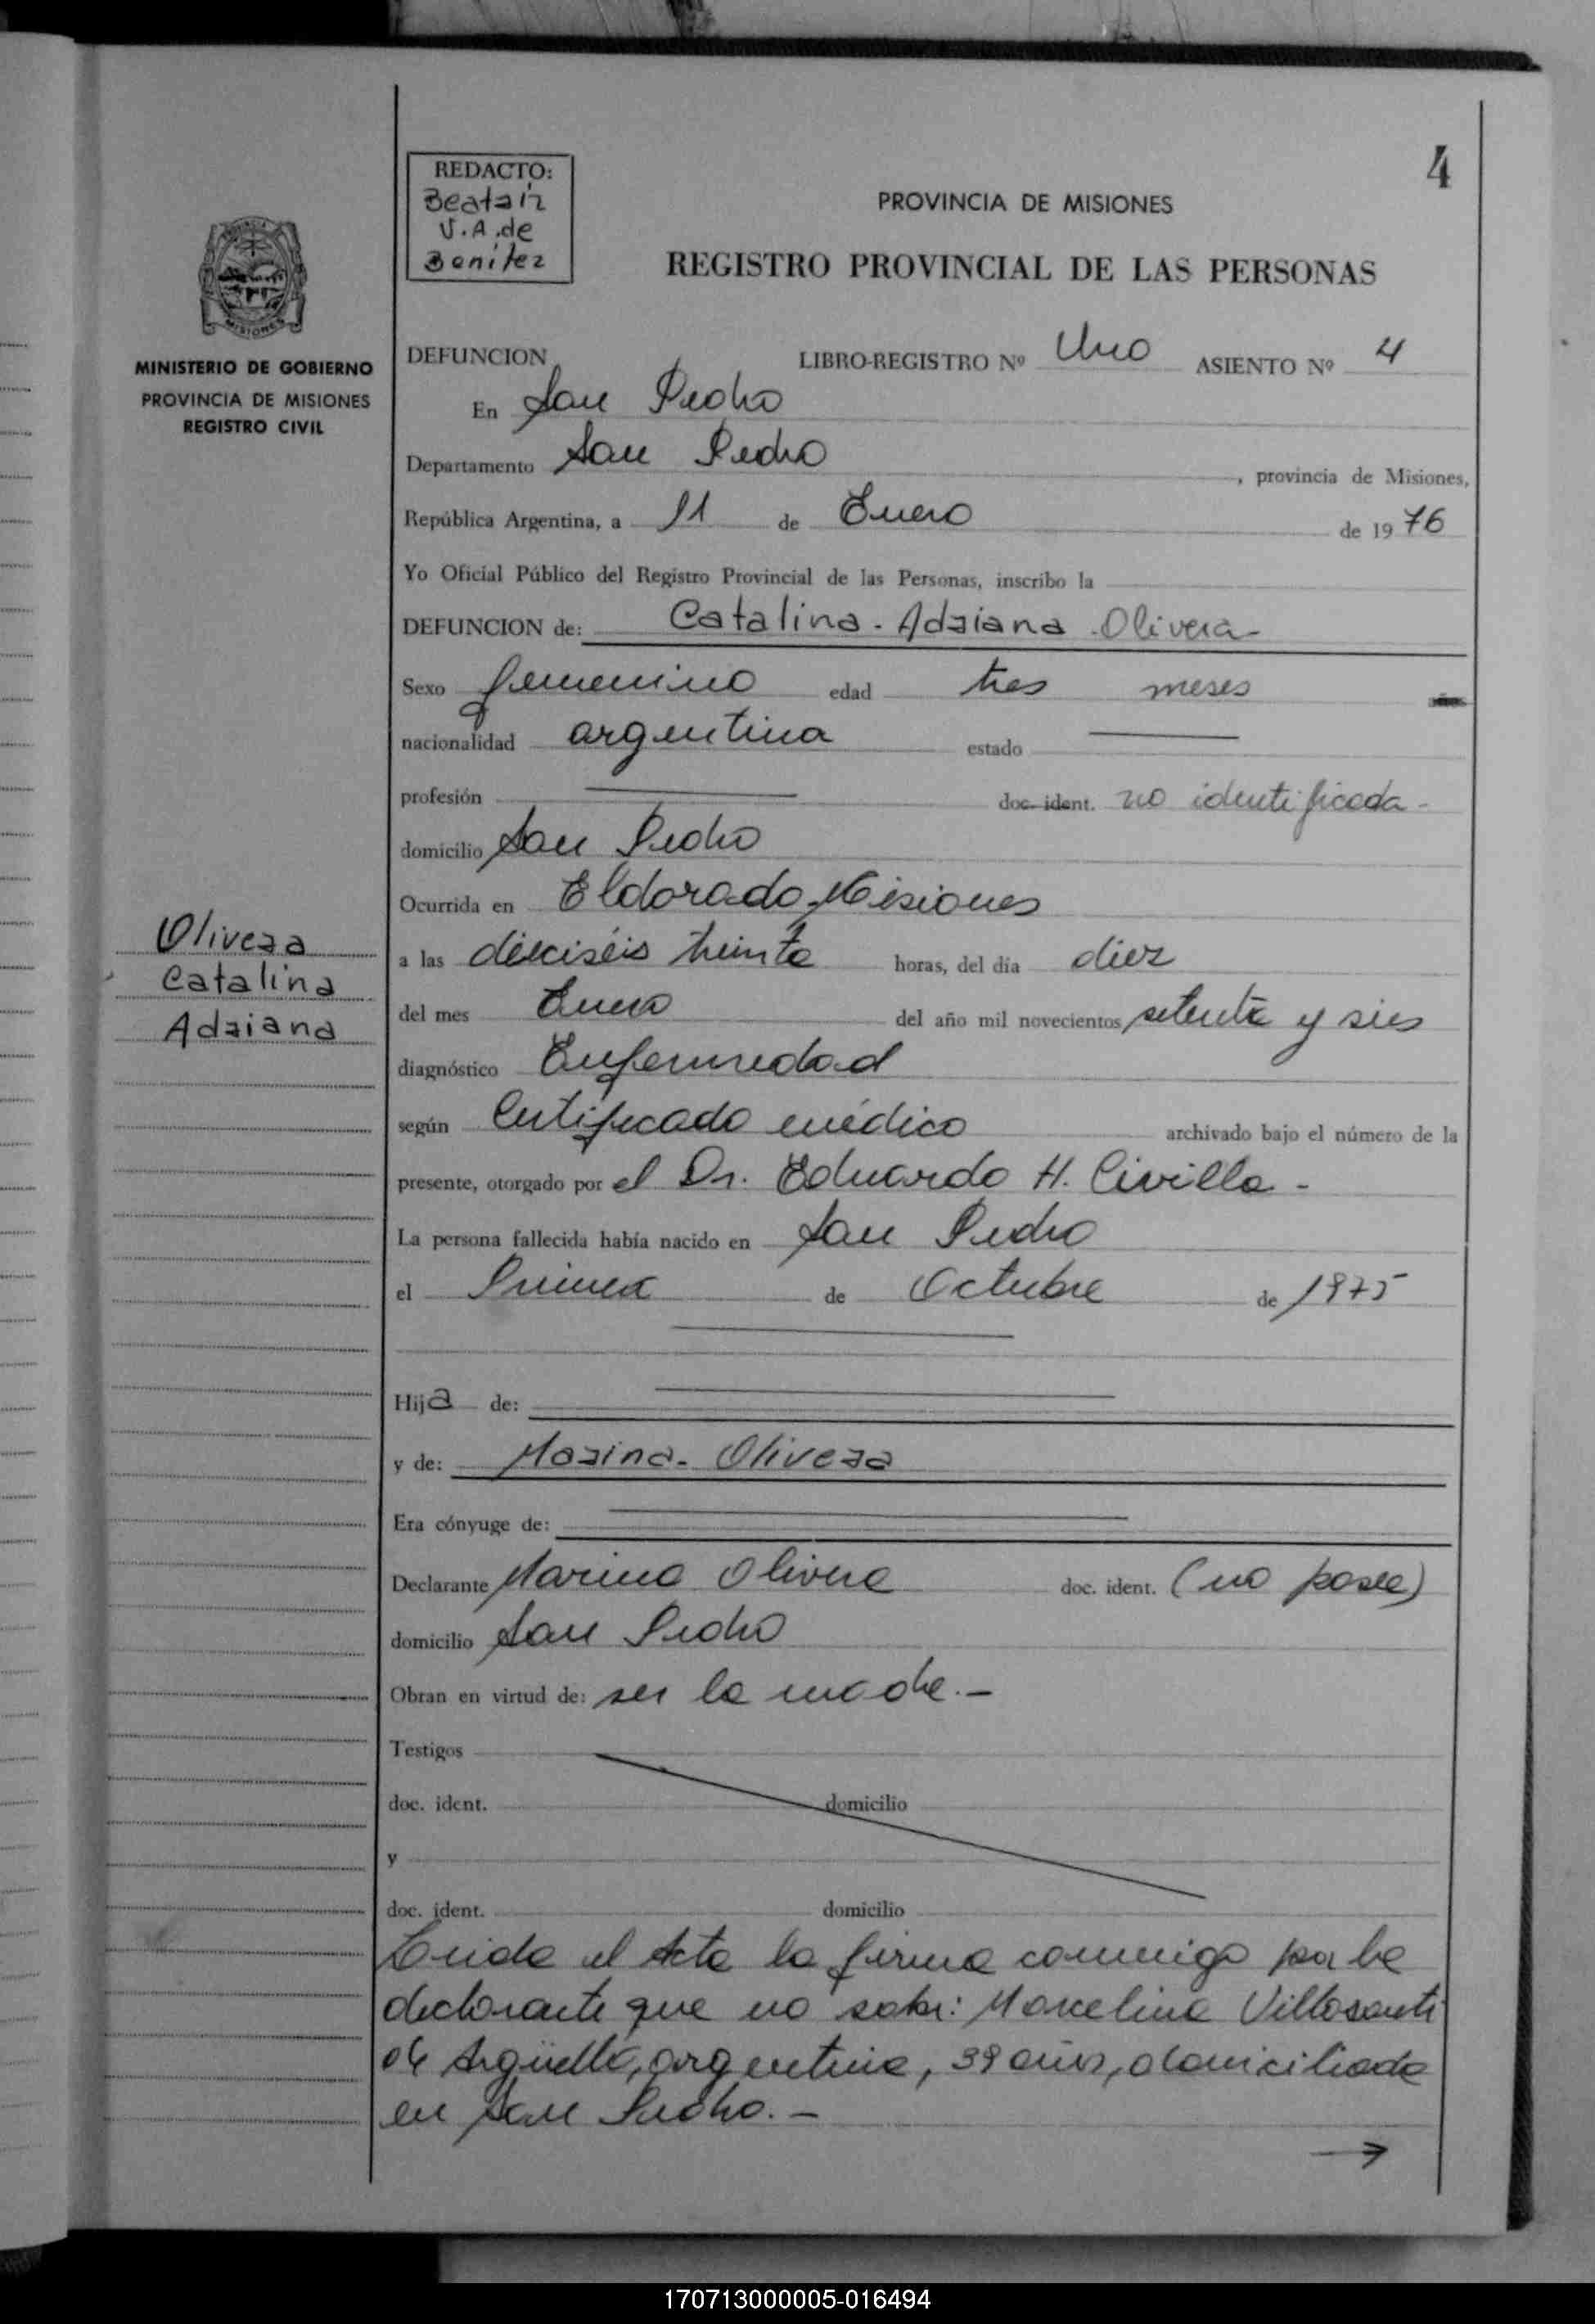 4
REDACTO:
Beatriz
V.A. de
Benitez
PROVINCIA DE MISIONES
REGISTRO PROVINCIAL DE LAS PERSONAS
MISIONES
MINISTERIO DE GOBIERNO
PROVINCIA DE MISIONES
REGISTRO CIVIL
DEFUNCION LIBRO-REGISTRO Nº Uno ASIENTO Nº 4
En San Pedro
Departamento San Pedro, provincia de Misiones,
República Argentina, a 11 de Enero de 1976
Yo Oficial Público del Registro Provincial de las Personas, inscribo la
DEFUNCION de: Catalina - Adriana Olivera -
Sexo femenino edad tres meses
nacionalidad argentina estado
profesión doc. ident. no identificada -
domicilio San Pedro
Ocurrida en Eldorado, Misiones
Olivera
Catalina
Adriana
a las dieciséis treinta horas, del día diez
del mes Enero del año mil novecientos setenta y seis
diagnóstico Enfermedad
según Certificado médico archivado bajo el número de la
presente, otorgado por el Dr. Eduardo H. Civilla -
La persona fallecida había nacido en San Pedro
el Primero de Octubre de 1975
Hija de:
y de: Marina - Olivera
Era cónyuge de:
Declarante Marina Olivera doc. ident. (no posee)
domicilio San Pedro
Obran en virtud de: ser la madre. -
Testigos
doc. ident. domicilio
y
doc. ident. domicilio
Leida el Acta la firma conmigo por la
declarante que no sabe: Marcelina Villasanti
de Argüello, argentina, 39 años, domiciliada
en San Pedro. -
→
170713000005-016494